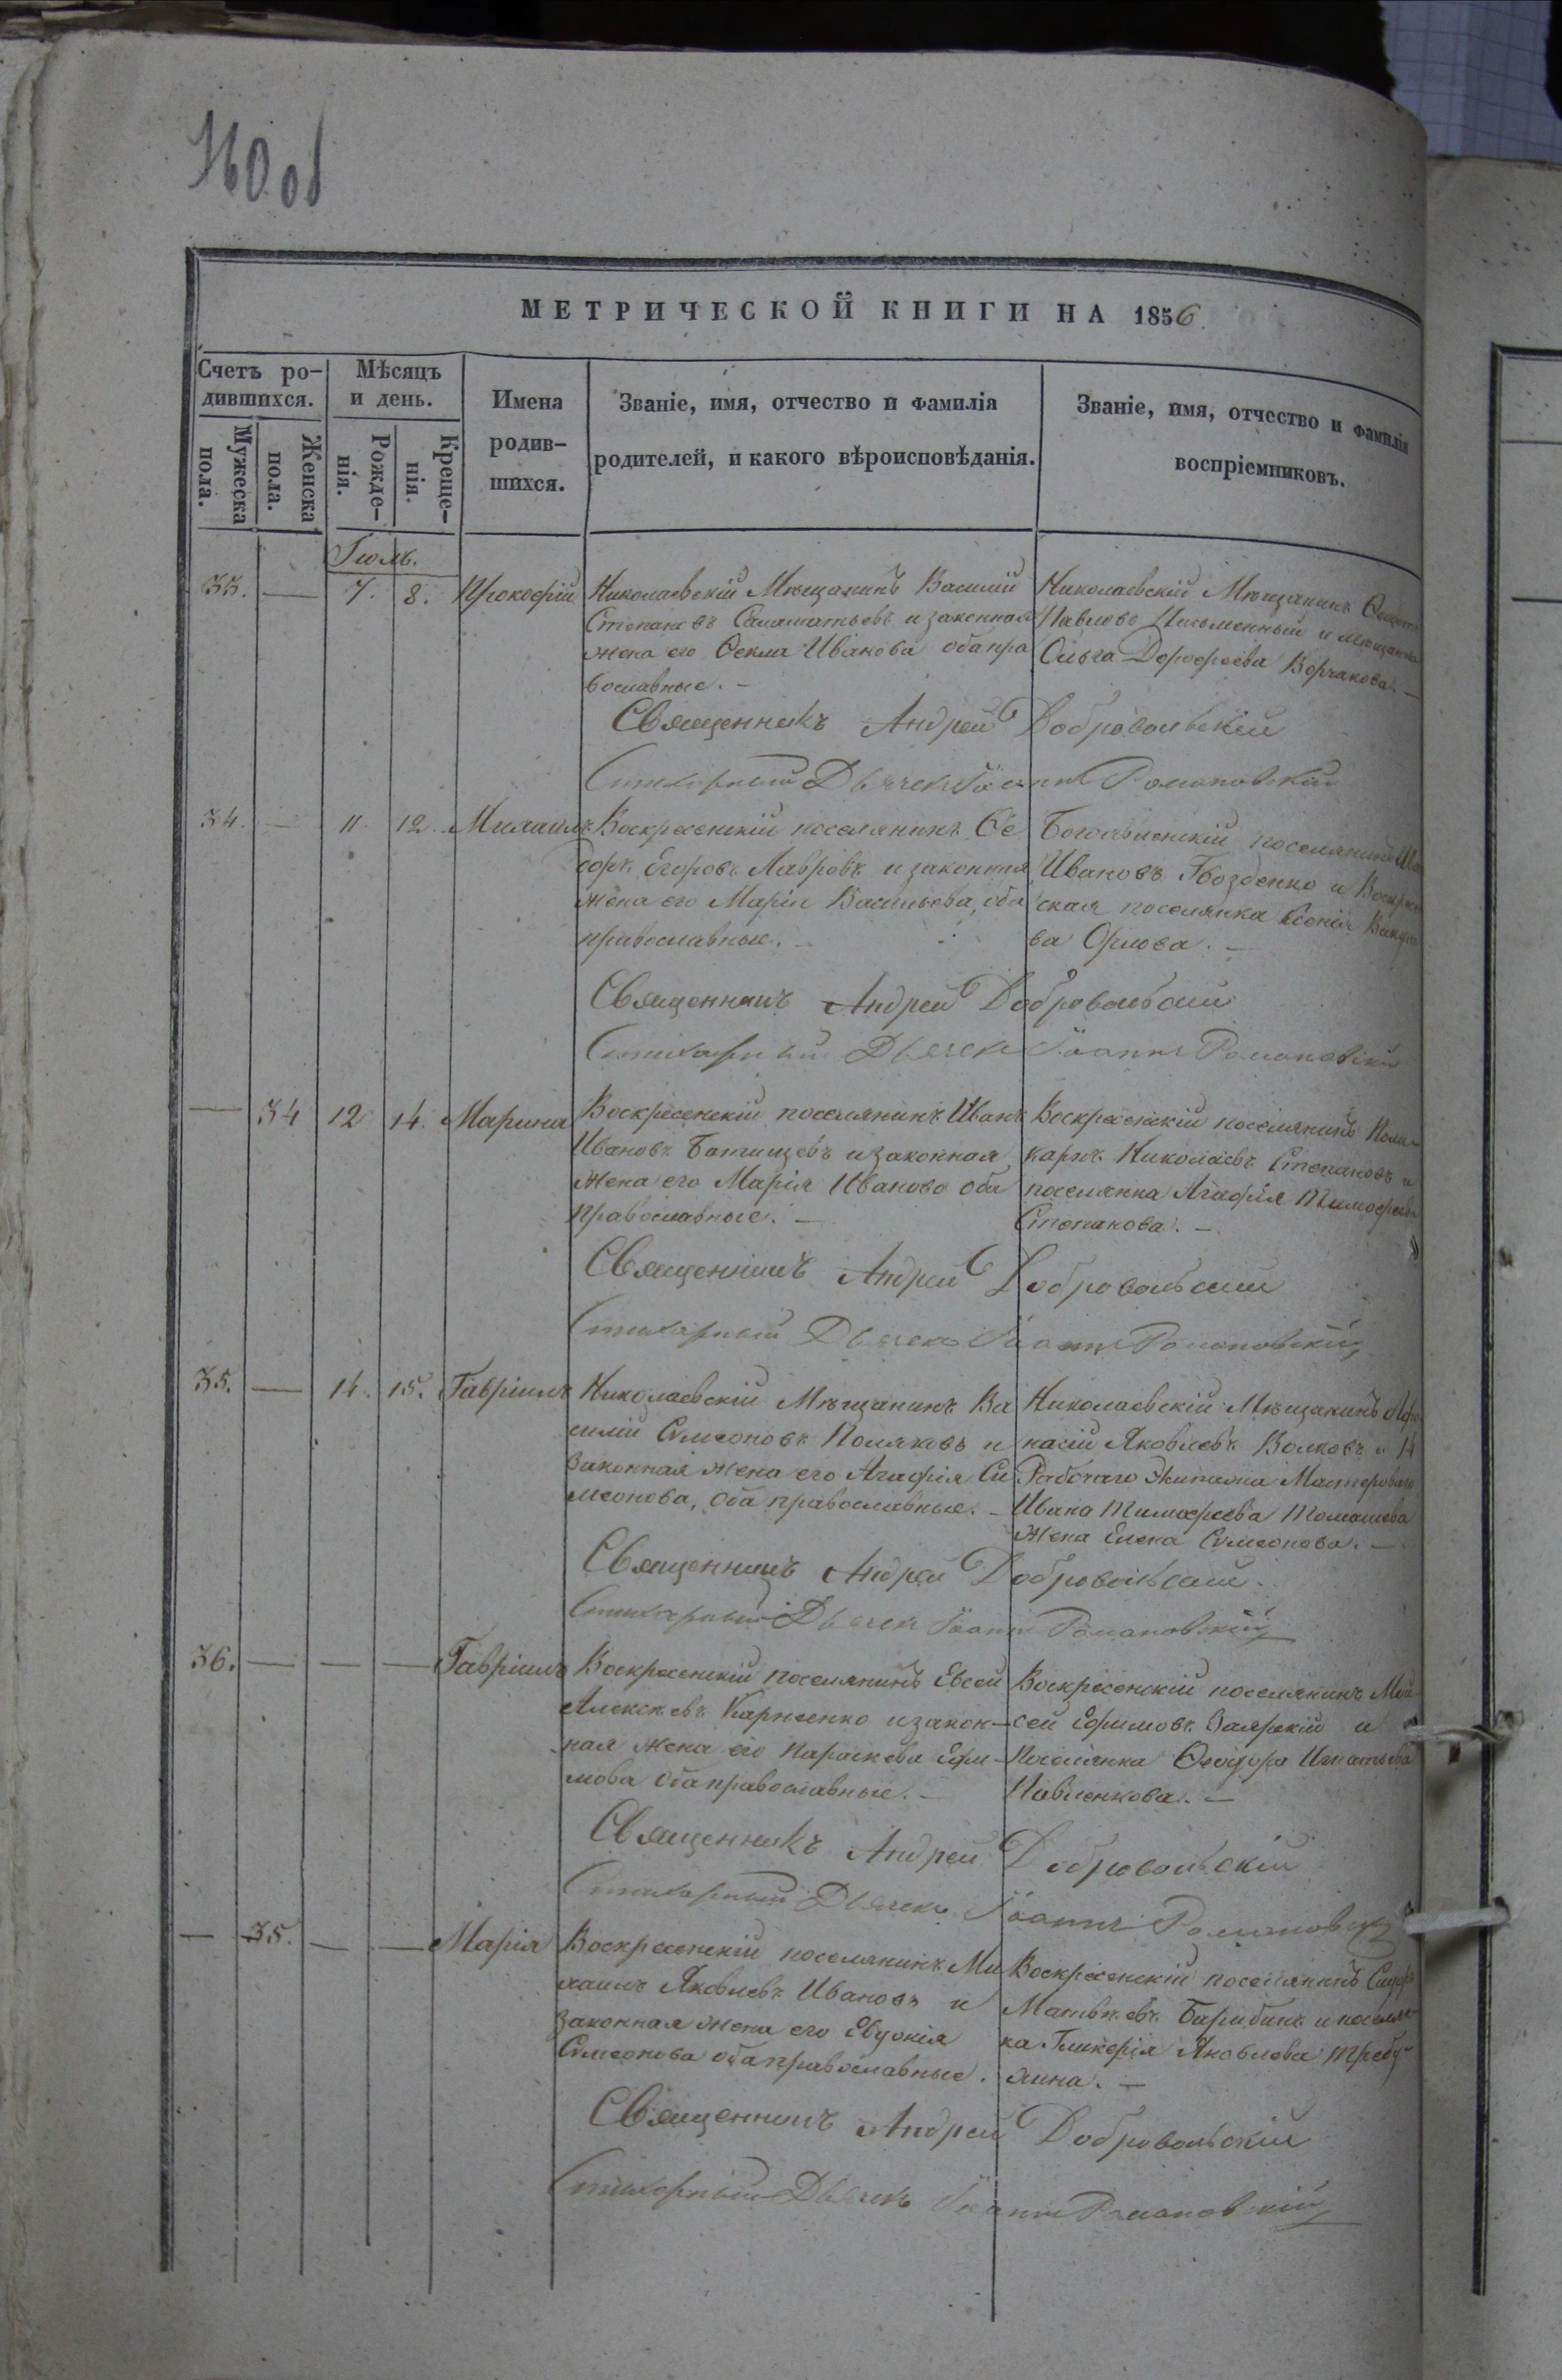 160 об
МЕТРИЧЕСКОЙ КНИГИ НА 1856
Счетъ ро-
дившихся.
Мужеска
пола.
Женска
пола.
Мѣсяцъ
и день.
Рожде-
нія.
Креще-
нія.
Имена
родив-
шихся.
Званіе, имя, отчество и фамилія
родителей, и какого вѣроисповѣданія.
Званіе, имя, отчество и фамилія
воспріемниковъ.
Іюль.
33. — 7. 8. Прокофій
Николаевскій Мѣщанинъ Василій
Степановъ и законная
жена его Ѳекла Иванова оба пра
вославные. —
Николаевскій Мѣщанинъ
Павловъ Письменный и мѣщанка
Ольга Дорофеева Борчакова. —
Священникъ Андрей Добровольскій
Стихарный Дьячекъ Іоаннъ Романовскій
34. — 11. 12. Михаилъ
Воскресенскій поселянинъ Ѳе
доръ Егоровъ Лавровъ и законная
жена его Марія Васильева, оба
православные. —
Богоявленскій поселянинъ
Ивановъ Гвозденко и
ская поселянка Ксенія
ва Орлова. —
Священникъ Андрей Добровольскій
Стихарный Дьячекъ Іоаннъ Романовскій
— 34 12 14. Марина
Воскресенскій поселянинъ Иванъ
Ивановъ Батищевъ и законная
жена его Марія Иванова оба
православные. —
Воскресенскій поселянинъ Поли-
карпъ Николаевъ Степановъ и
поселянка Агафія
Степанова. —
Священникъ Андрей Добровольскій
Стихарный Дьячекъ Іоаннъ Романовскій
35. — 14. 15. Гавріилъ
Николаевскій Мѣщанинъ Ва
силій Симеоновъ Поляковъ и
законная жена его Агафія Си
меонова, оба православные. —
Николаевскій Мѣщанинъ Афа
насій Яковлевъ Волковъ и
Рабочаго Экипажа Мастероваго
Ивана Тимофеева Томашева
жена Елена Симеонова. —
Священникъ Андрей Добровольскій
Стихарный Дьячекъ Іоаннъ Романовскій
36. — — — Гавріилъ
Воскресенскій поселянинъ Евсей
Алексѣевъ Карпенко и закон-
ная жена его Параскева Ефи-
мова оба православные. —
Воскресенскій поселянинъ Мои-
сей Ефимовъ Заярскій и
поселянка Ѳеодора Игнатьева
Павленкова. —
Священникъ Андрей Добровольскій
Стихарный Дьячекъ Іоаннъ Романовскій
— 35. — — Марія
Воскресенскій поселянинъ Ми
хаилъ Яковлевъ Ивановъ и
законная жена его Евдокія
Симеонова оба православные.
Воскресенскій поселянинъ
Матвѣевъ Барибинъ и поселян-
ка Гликерія Яковлева Требу-
хина. —
Священникъ Андрей Добровольскій
Стихарный Дьячекъ Іоаннъ Романовскій